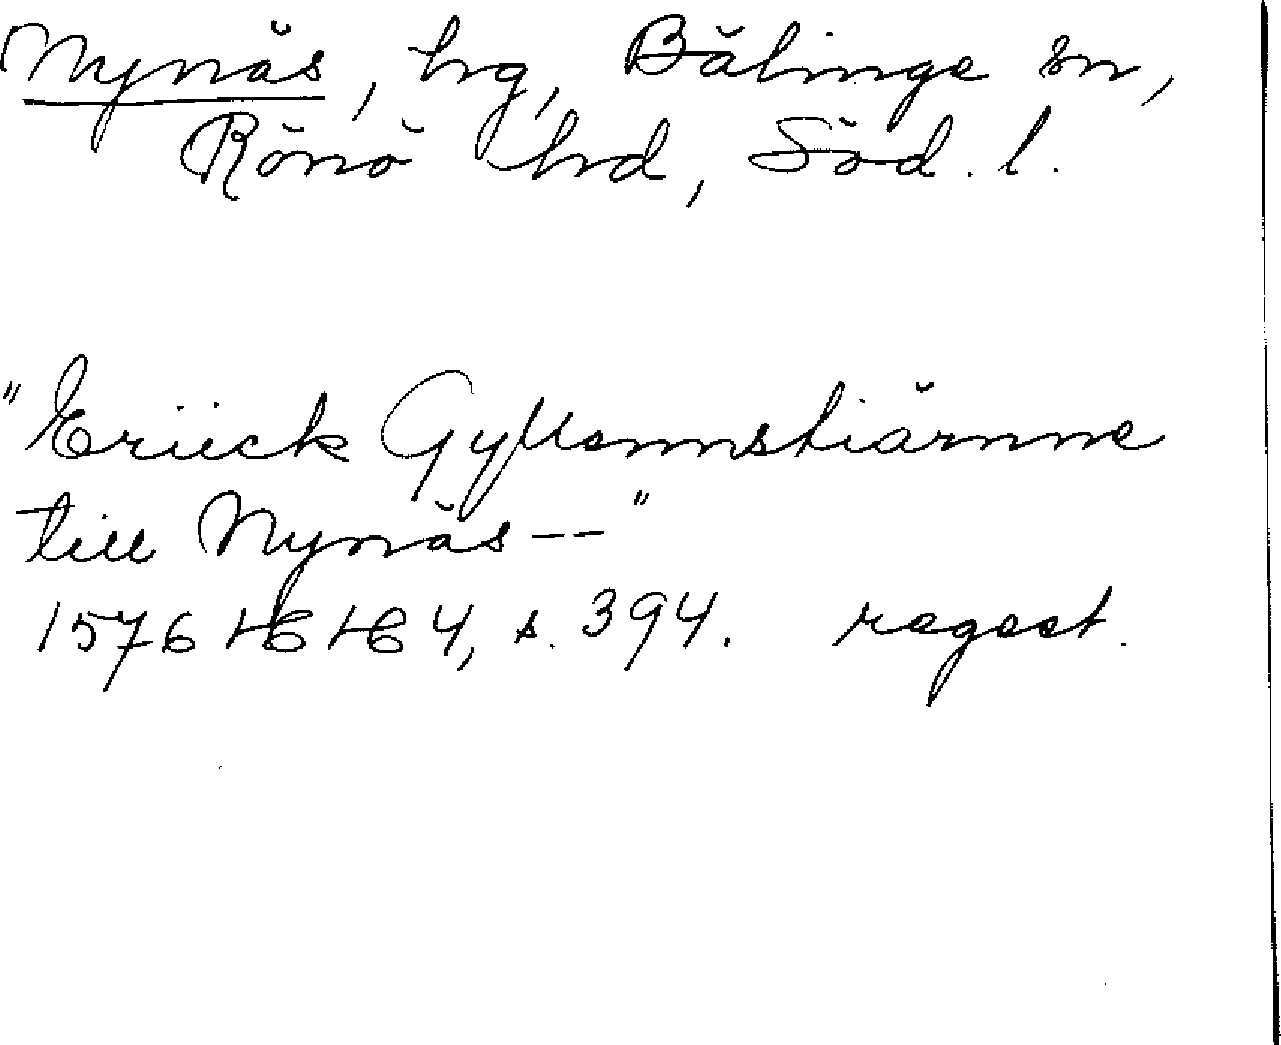 Nynäs, hg, Bälinge sn,
Rönö hd, Söd. l.
"Eriick Gyllennstiärnne
till Nynäs -- "
1576 HH 4, s. 394. regest.